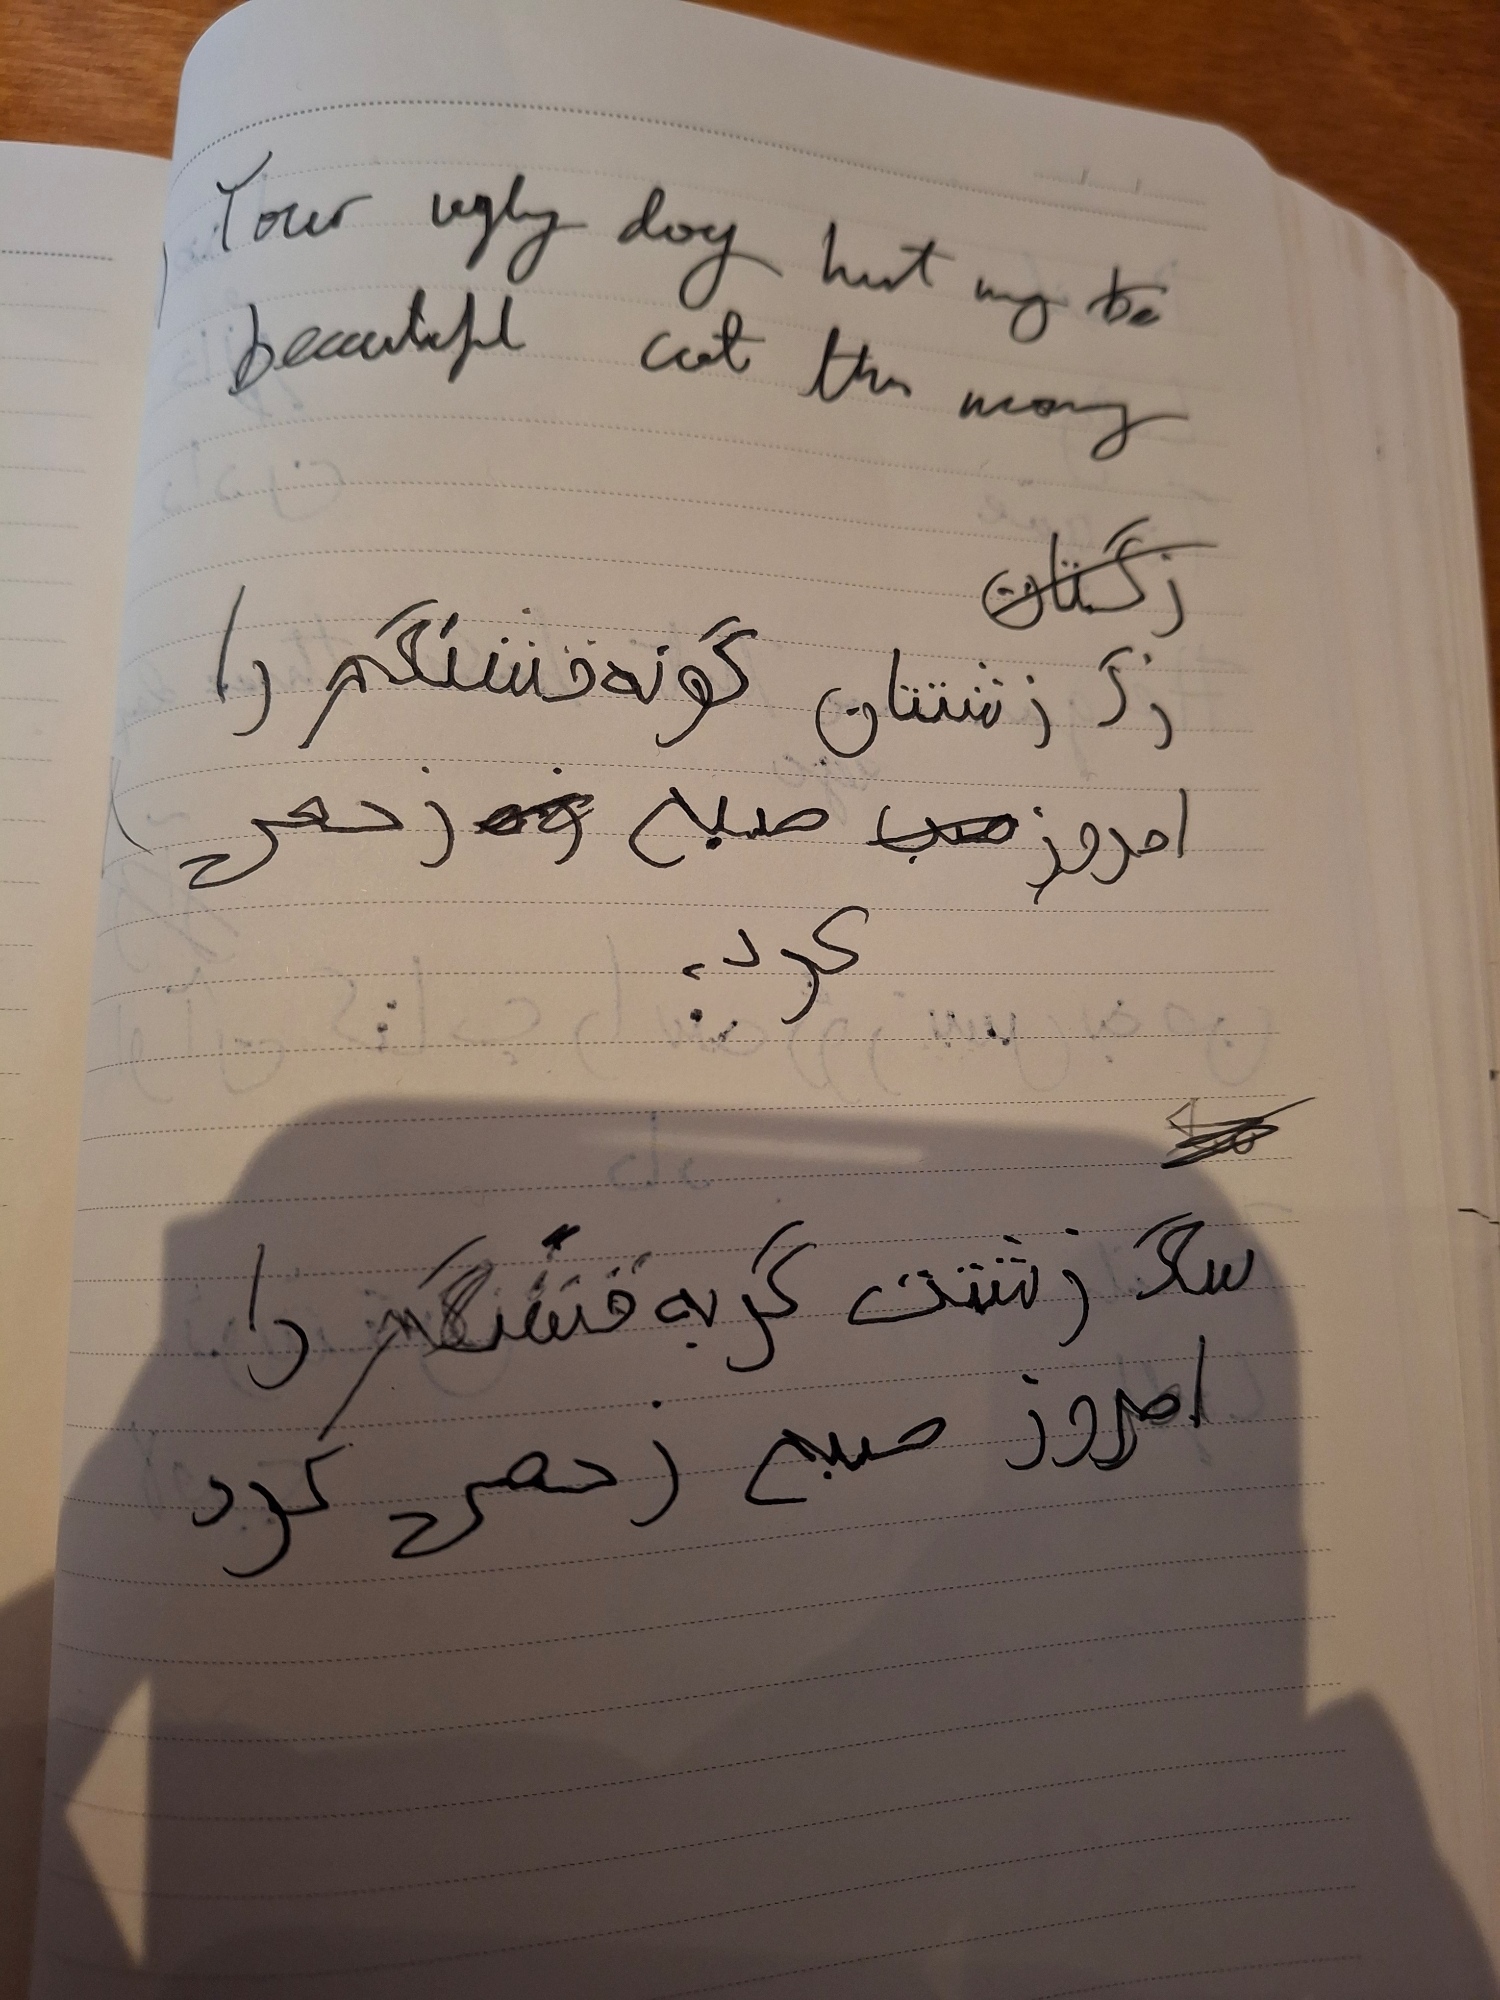 Your ugly dog hurt my be
beautiful cat this morning
زگتان
زگ زشتتان گونه قشنگم را
امروز صب صبح زخمی
کرد؟
سگ زشتت گربه قشنگم را
امروز صبح زخمی کرد